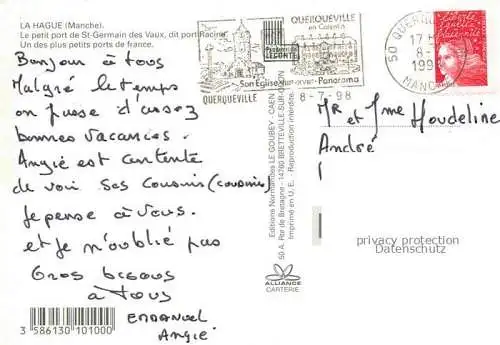 LA HAGUE (Manche).
Le petit port de St-Germain des Vaux, dit port Racine
Un des plus petits ports de france.
Bonjour à tous
Malgré le temps
on passe d'assez
bonnes vacances.
Angié est contente
de voir ses cousins (cousines)
Je pense à vous.
et je n'oublié pas
Gros bisous
à tous
EMMANUEL
Angié
3 586130 101000
QUERQUEVILLE
en Cotentin
LECONTE
Son Eglise -Panorama
QUERQUEVILLE
8-7-98
50 QUERQU
17 H
8-
199
MANCHE
LIBERTÉ
Editions Normandes LE GOUBEY - CAEN
50 A, Rte de Bretagne - 14760 BRETTEVILLE-SUR-ODON
Imprimé en U.E. - Reproduction interdite.
ALLIANCE
CARTERIE
Mr et Mme Houdeline
André
privacy protection
Datenschutz